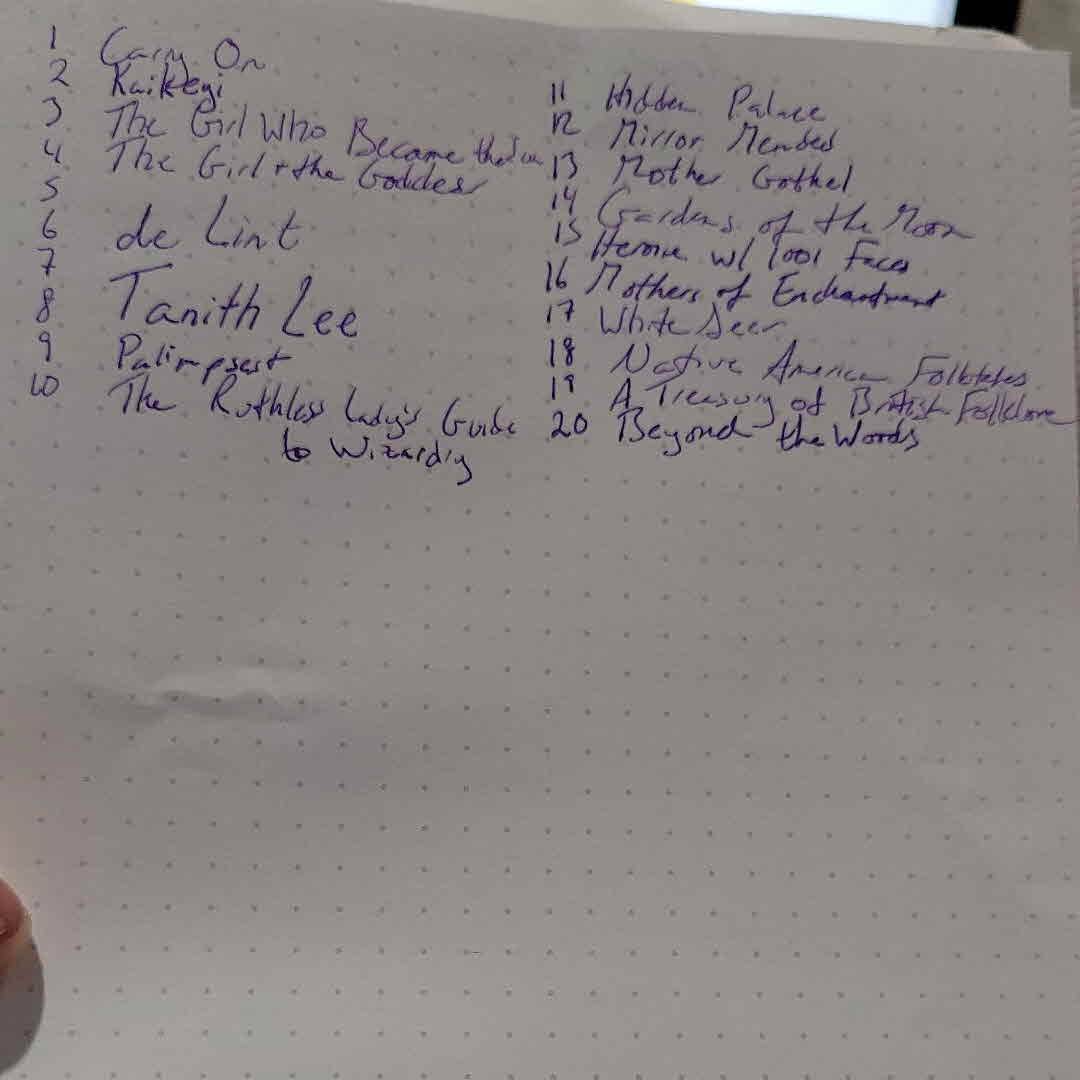 1 Carry On
2 Kaikeyi
3 The Girl Who Became the
4 The Girl + the Goddess
5
6 de Lint
7
8 Tanith Lee
9 Palimpsest
10 The Ruthless Lady's Guide
to Wizardry
11 Hidden Palace
12 Mirror Mended
13 Mother Gothel
14 Gardens of the Moon
15 Heroine w/ 1001 Faces
16 Mothers of Enchantment
17 White Deer
18 Native American Folktales
19 A Treasury of British Folklore
20 Beyond the Woods